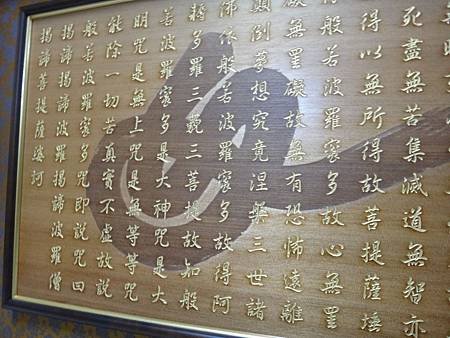 死盡無苦集滅道無智亦
得以無所得故菩提薩埵
依般若波羅蜜多故心無罣
礙無罣礙故無有恐怖遠離
顛倒夢想究竟涅槃三世諸
佛依般若波羅蜜多故得阿
耨多羅三藐三菩提故知般
若波羅蜜多是大神咒是大
明咒是無上咒是無等等咒
能除一切苦真實不虛故說
般若波羅蜜多咒即說咒曰
揭諦揭諦波羅揭諦波羅僧
揭諦菩提薩婆訶